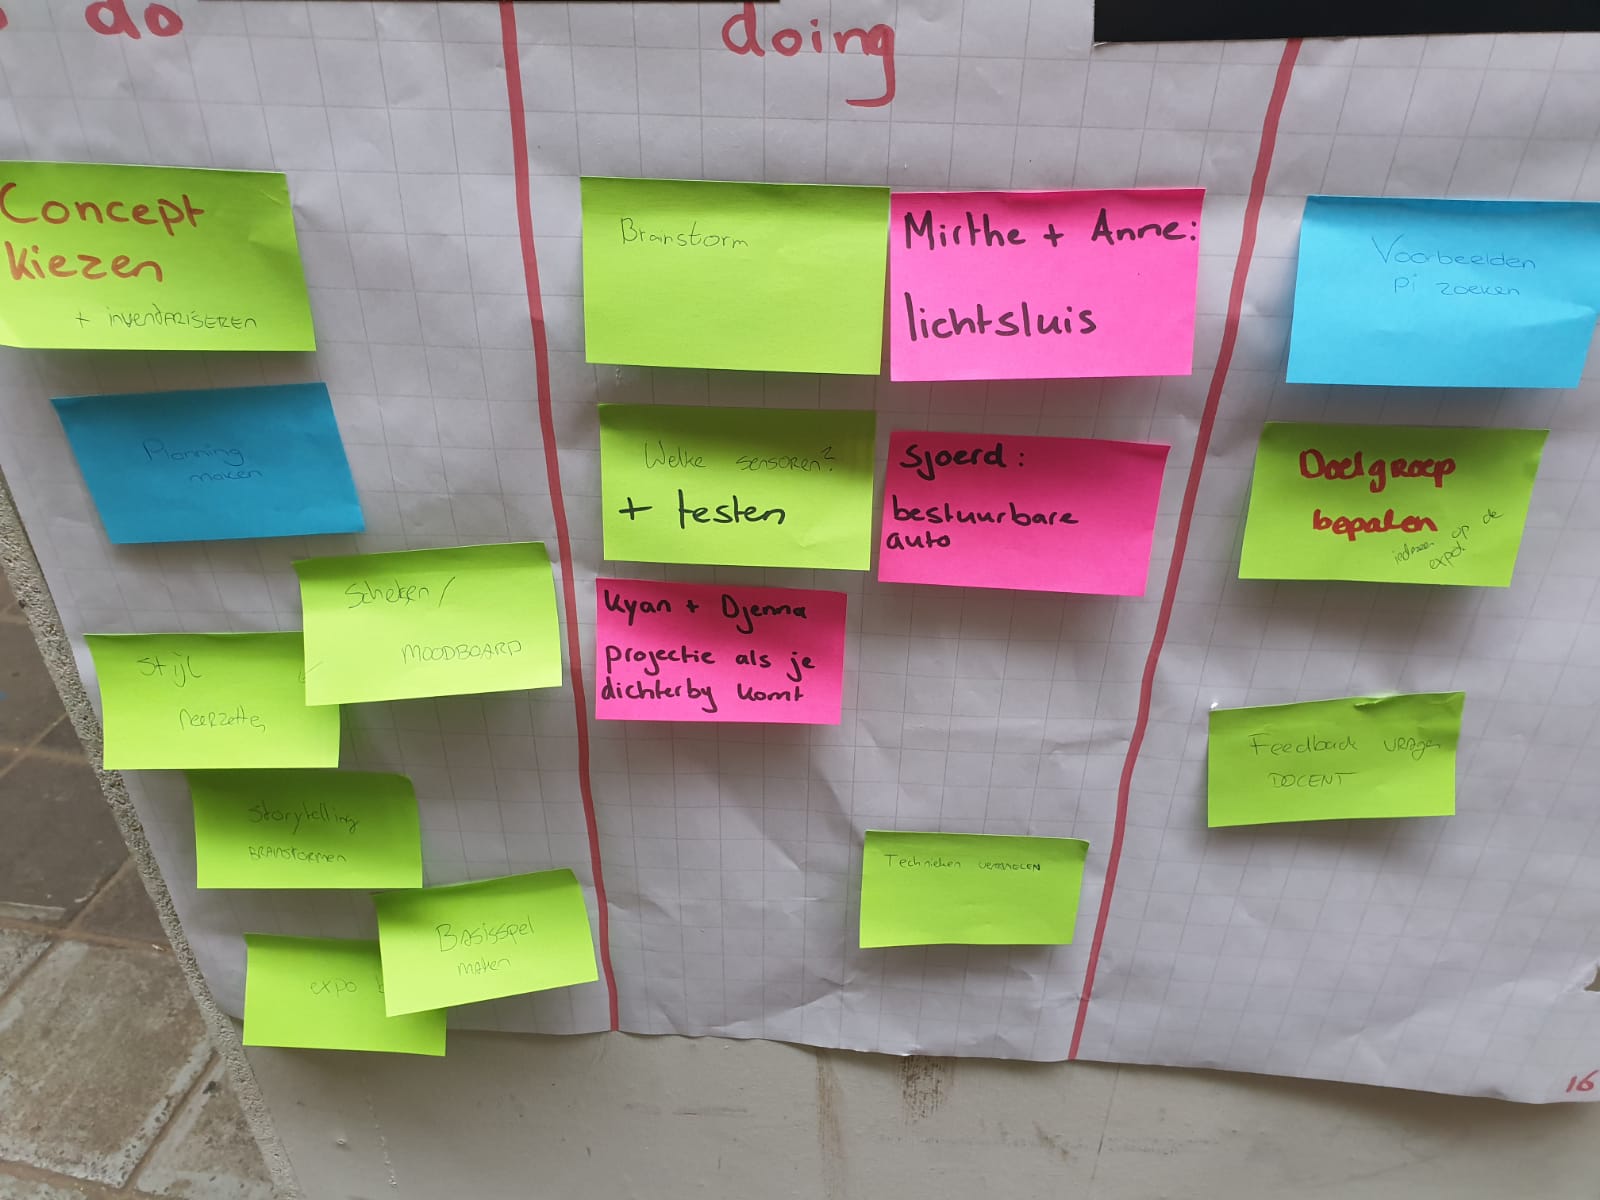 do
doing
Concept
kiezen
+ inventariseren
Planning
maken
Schetsen/
MOODBOARD
Stijl
neerzetten
Storytelling
BRAINSTORMEN
Basisspel
maken
expo
Brainstorm
Mirthe + Anne:
lichtsluis
Welke sensoren?
+ testen
Sjoerd:
bestuurbare
auto
Kyan + Djenna
projectie als je
dichterby komt
Technieken
Voorbeelden
Pi zoeken
Doelgroep
bepalen
iedereen op de
expo!
Feedback vragen
DOCENT
16